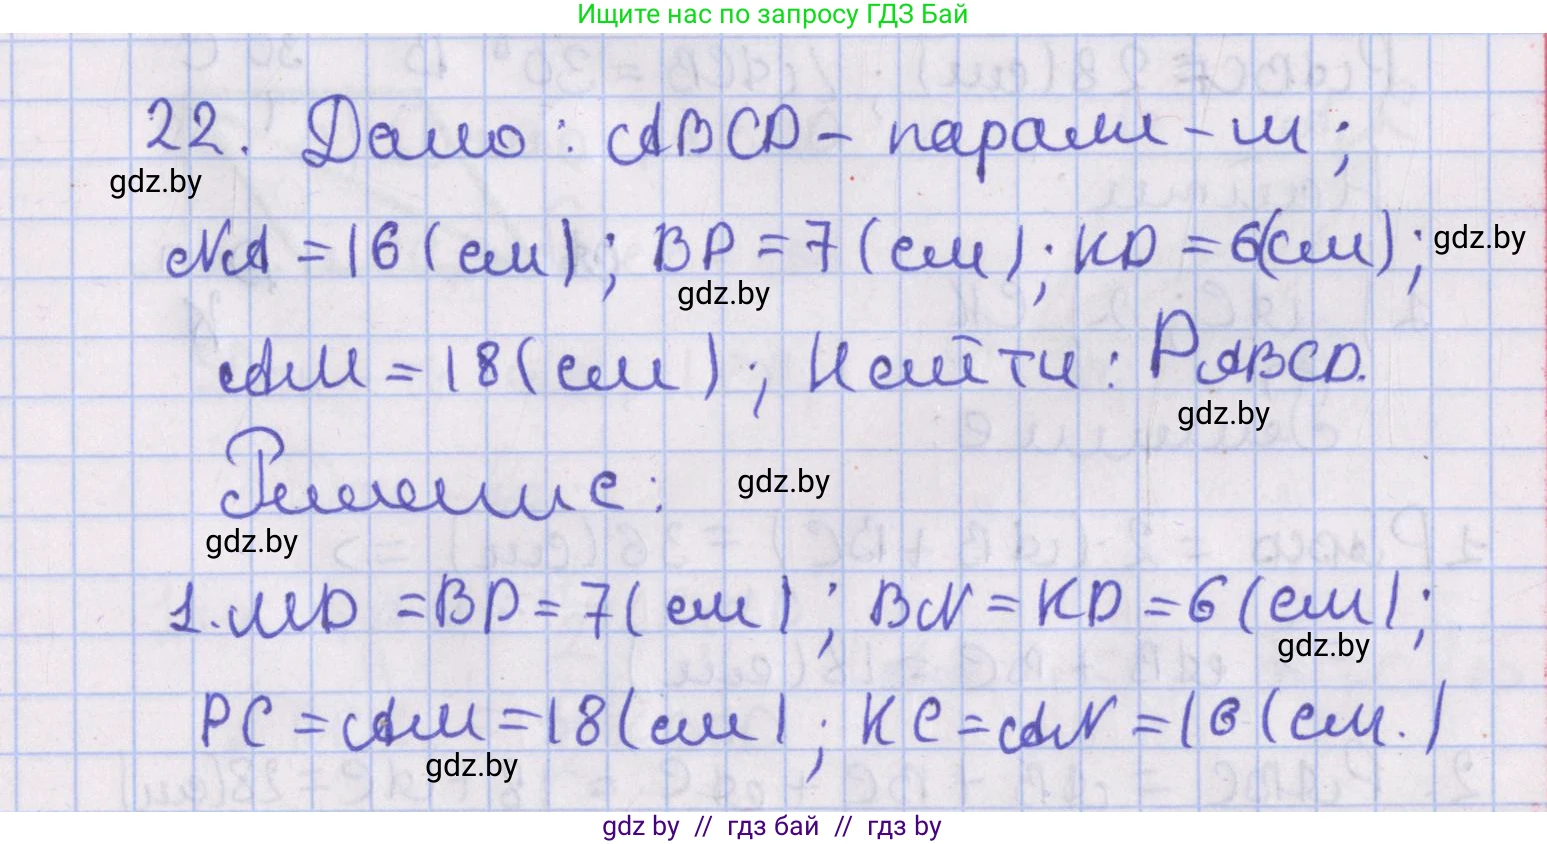 Ищите нас по запросу ГДЗ Бай
22. Дано: ABCD - паралл-м;
gdz.by
NA = 16 (см); BP = 7 (см); KD = 6(см); gdz.by
gdz.by
AM = 18 (см); Найти: PABCD.
gdz.by
Решение: gdz.by
gdz.by
1. MD = BP = 7 (см); BN = KD = 6 (см);
gdz.by
PC = AM = 18 (см); KC = AN = 16 (см.)
gdz.by
gdz by // гдз бай // гдз by